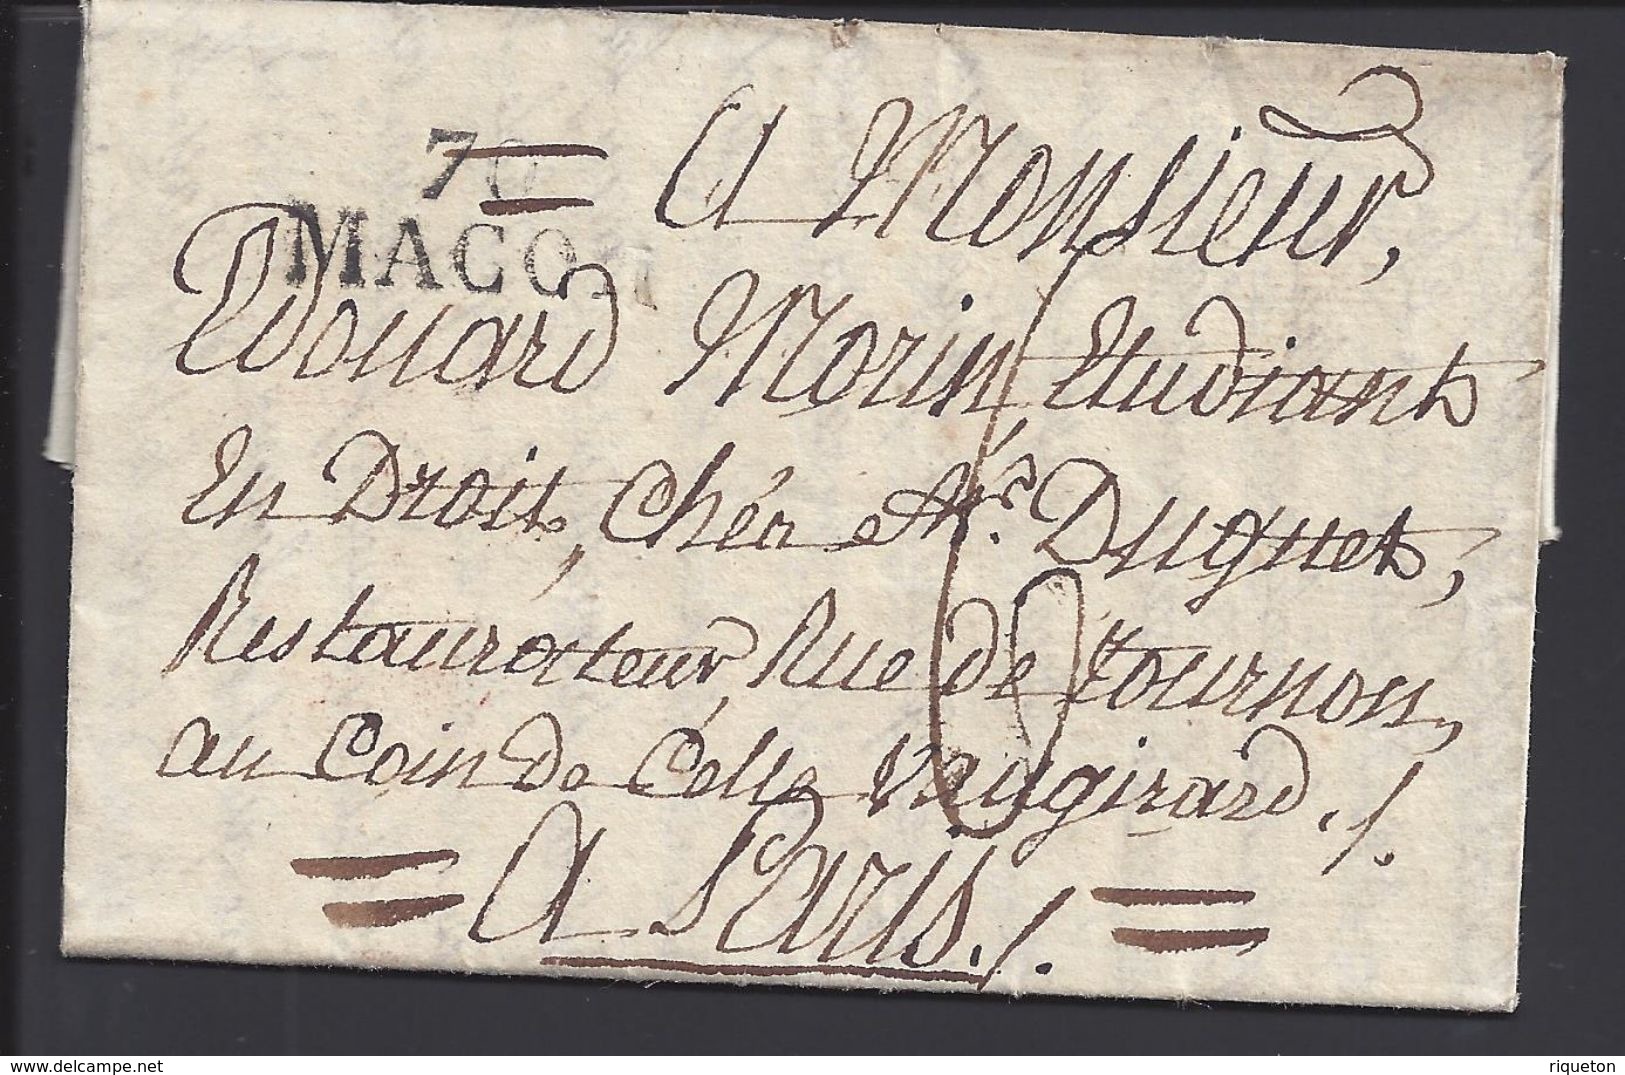 70
MACON
A Monsieur,
Edouard Morin Etudiant
En Droit, Chéz Mr. Duguet,
Restaurateur, Rue de tournon,
au Coin de Célle Vaugirard ./.
A Paris ./.
riqueton